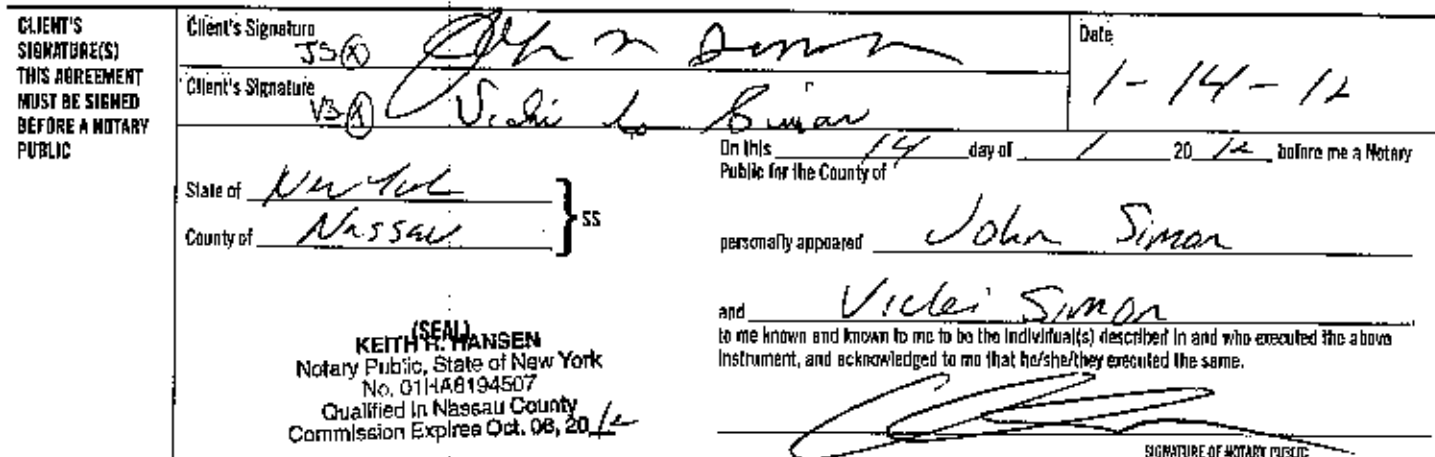 CLIENT'S
SIGNATURE(S)
THIS AGREEMENT
MUST BE SIGNED
BEFORE A NOTARY
PUBLIC
Client's Signature
JS (X)
Date
1-14-12
Client's Signature
VS (X) Vicki L Simon
State of New York
County of Nassau
} SS
(SEAL)
KEITH R. HANSEN
Notary Public, State of New York
No. 01HA6194507
Qualified in Nassau County
Commission Expires Oct. 06, 2012
On this 14 day of 1 2012 before me a Notary
Public for the County of
personally appeared John Simon
and Vicki Simon
to me known and known to me to be the individual(s) described in and who executed the above
instrument, and acknowledged to me that he/she/they executed the same.
SIGNATURE OF NOTARY PUBLIC